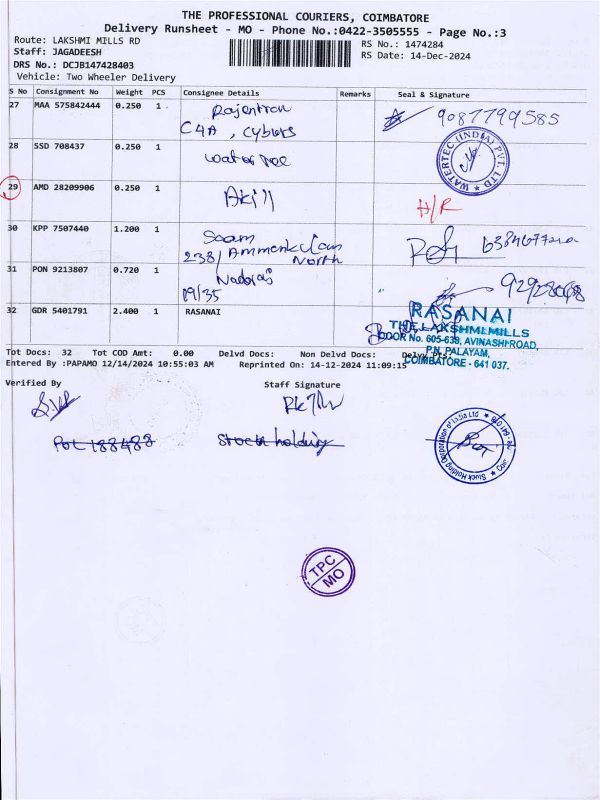 THE PROFESSIONAL COURIERS, COIMBATORE
Delivery Runsheet - MO - Phone No.:0422-3505555 - Page No.:3
Route: LAKSHMI MILLS RD
RS No.: 1474284
Staff: JAGADEESH
RS Date: 14-Dec-2024
DRS No.: DCJB147428403
Vehicle: Two Wheeler Delivery
S No Consignment No Weight PCS Consignee Details Remarks Seal & Signature
27 MAA 575842444 0.250 1
C4A, Cybers
9087799585
28 SSD 708437 0.250 1
WATERTEC (INDIA) PVT. LTD
29 AMD 28209906 0.250 1 Akill
H/R
30 KPP 7507440 1.200 1
238/
North
31 PON 9213807 0.720 1
09/35
32 GDR 5401791 2.400 1 RASANAI
RASANAI
THE LAKSHMI MILLS
DOOR No. 605-639, AVINASHI ROAD,
P.N. PALAYAM,
COIMBATORE - 641 037.
Tot Docs: 32 Tot COD Amt: 0.00 Delvd Docs: Non Delvd Docs:
Entered By :PAPAMO 12/14/2024 10:55:03 AM Reprinted On: 14-12-2024 11:09:15
Verified By
Staff Signature
POL 188488 Stock holding
Stock Holding Corporation of India Ltd
TPC
MO